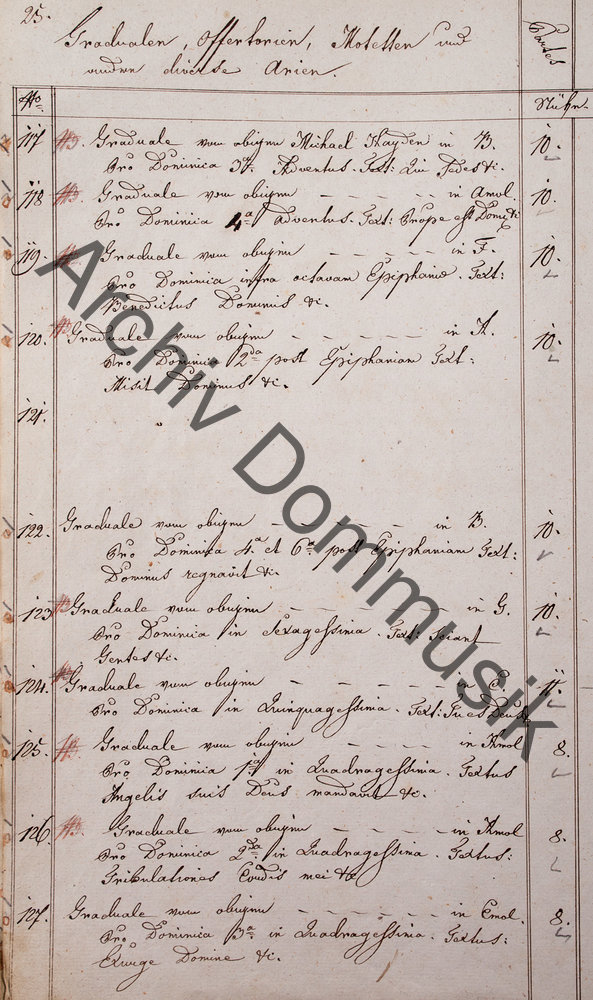 25.
Partes
Gradualen, Offertorien, Motetten und
andere diverse Arien.
No.
Stükr.
117 No. Graduale vom obigen Michael Hayden in B. 10.
Pro Dominica 3a Adventus. Text: Qui Sedes &c.
118 No. Graduale vom obigen – – – – in Amol. 10.
Pro Dominica 4a Adventus. Text: Prope est Domi: &c
119. Graduale vom obigen – – – – in F. 10.
Pro Dominica infra octavam Epiphaniæ. Text:
Benedictus Dominus &c.
120. No Graduale vom obigen – – – – – in A. 10.
Pro Dominica 2da post Epiphaniam Text:
Misit Dominus &c.
121.
122. Graduale vom obigen – – – – – in B. 10.
Pro Dominica 4a et 6a post Epiphaniam Text:
Dominus regnavit &c.
123 No Graduale vom obigen – – – – – in G. 10.
Pro Dominica in Sexagessima. Text: Sciant
Gentes &c.
124. No Graduale vom obigen – – – – – in C. 11.
Pro Dominica in Quinquagessima. Text: Tu es Deus &c
125. No. Graduale vom obigen – – – – in Amol 8.
Pro Dominica 1a in Quadragessima. Textus
Angelis suis Deus mandavit &c.
126. No. Graduale vom obigen – – – – in Amol 8.
Pro Dominica 2da in Quadragessima. Textus:
Tribulationes Cordis mei &c
127. Graduale vom obigen – – – – – in Emol. 8.
Pro Dominica 3a in Quadragessima. Textus:
Exurge Domine &c.
Archiv Dommusik